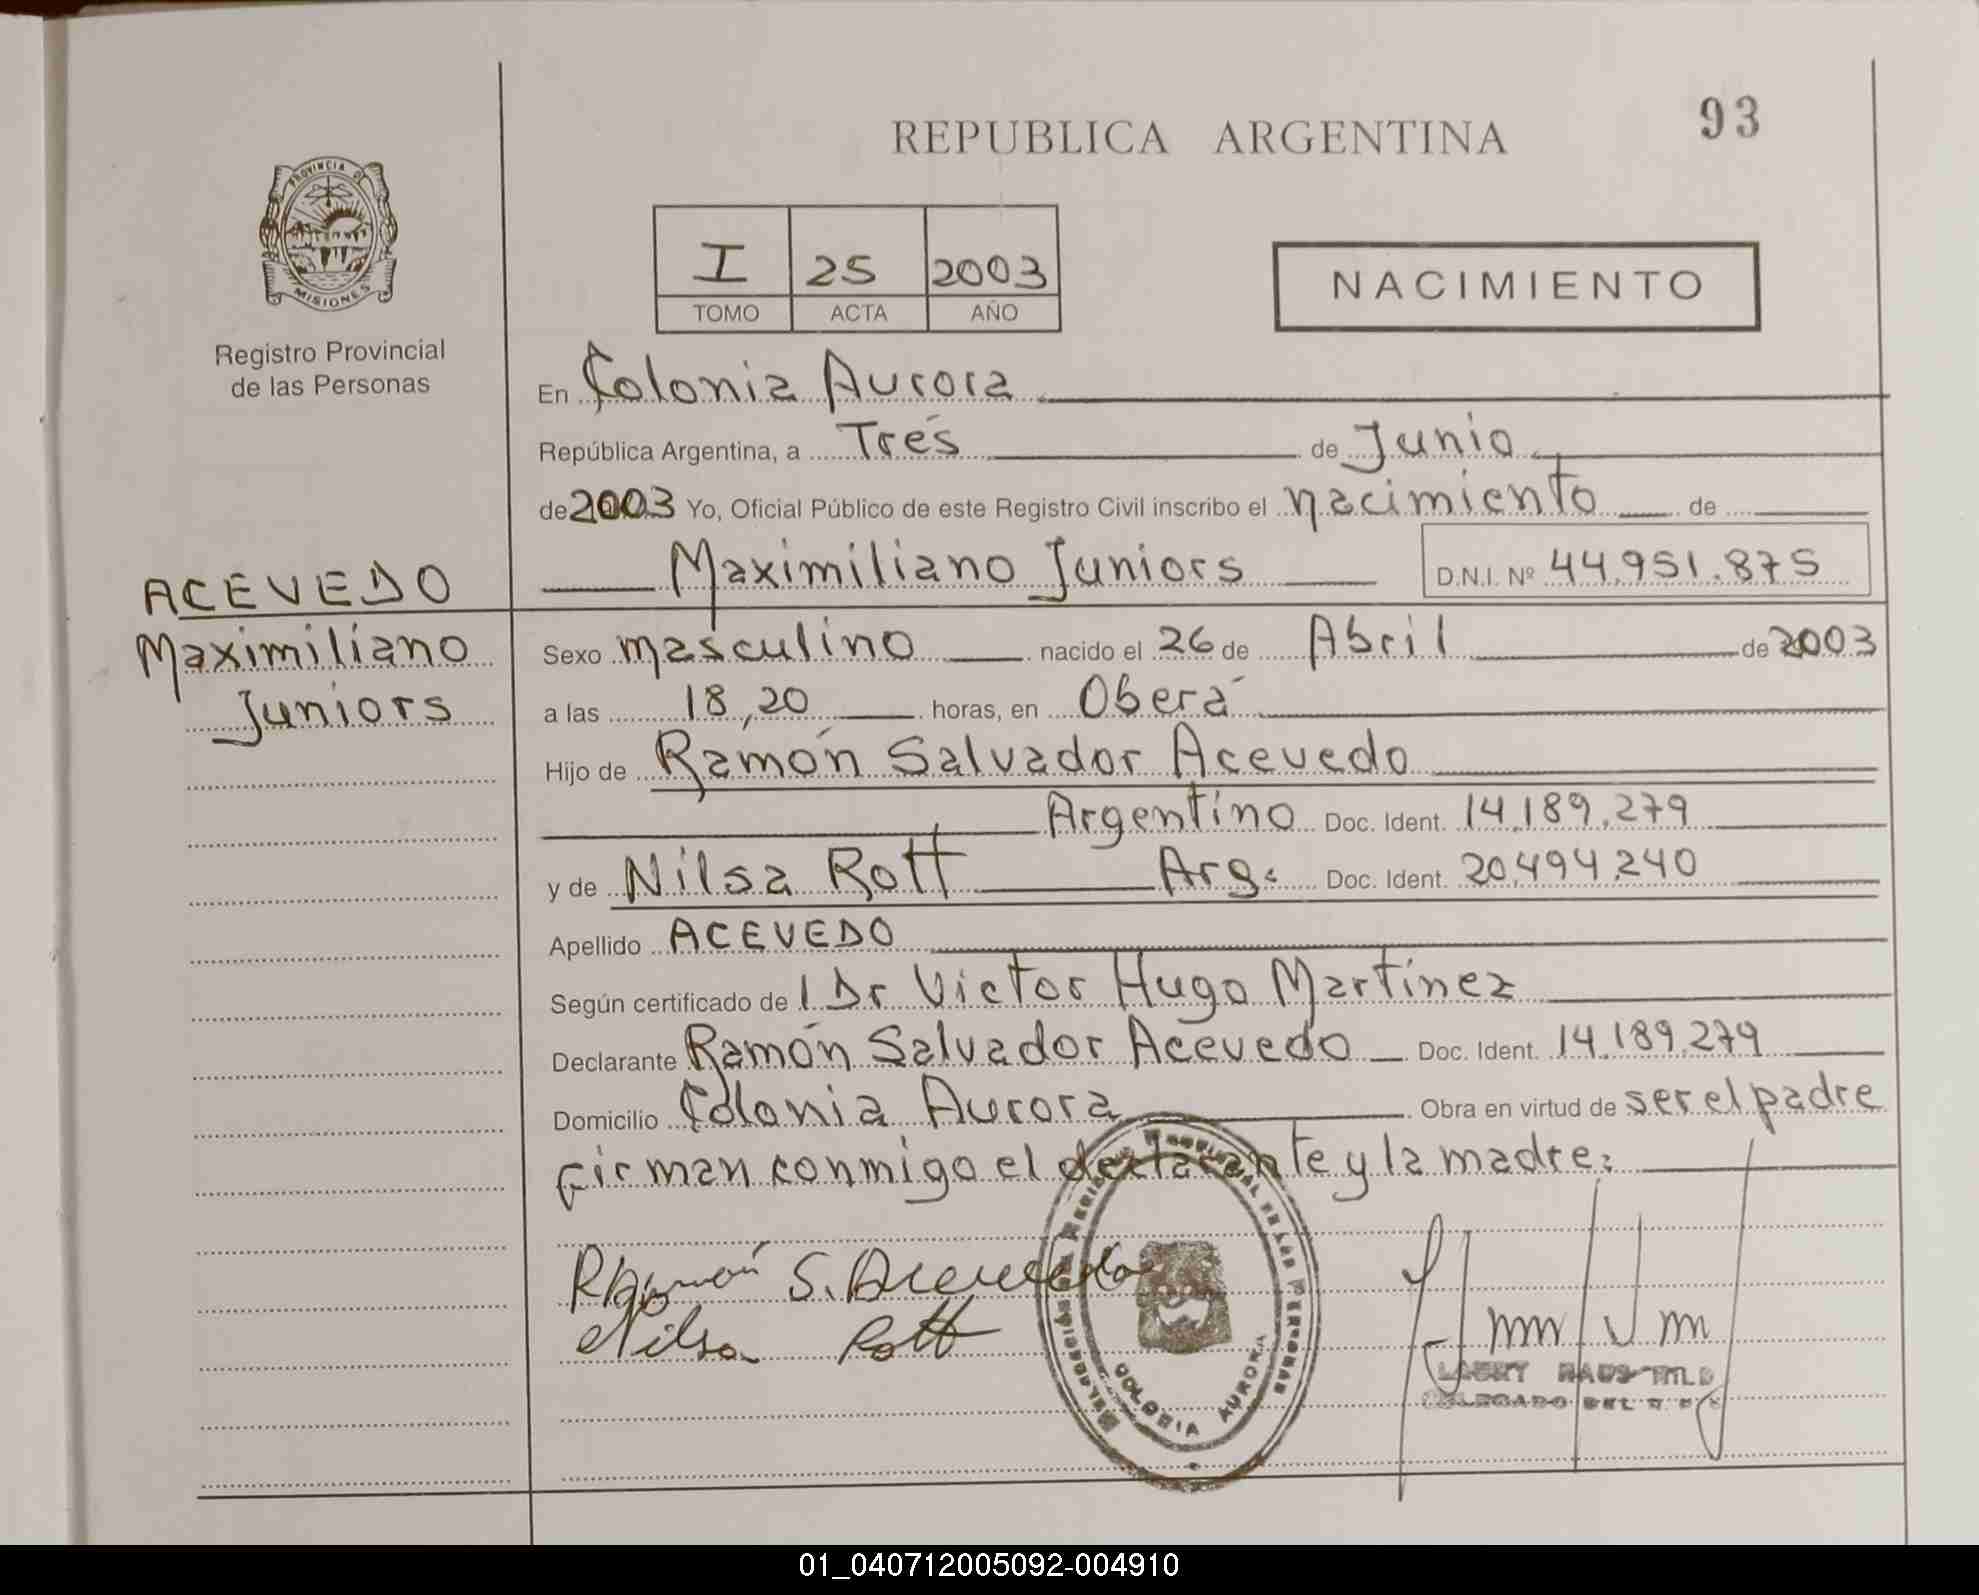 REPUBLICA ARGENTINA
93
PROVINCIA DE
MISIONES
Registro Provincial
de las Personas
I 25 2003
TOMO ACTA AÑO
NACIMIENTO
En Colonia Aurora
República Argentina, a Tres de Junio
de 2003 Yo, Oficial Público de este Registro Civil inscribo el nacimiento de
Maximiliano Juniors D.N.I. Nº 44.951.875
ACEVEDO
Maximiliano
Juniors
Sexo masculino nacido el 26 de Abril de 2003
a las 18,20 horas, en Oberá
Hijo de Ramón Salvador Acevedo
Argentino Doc. Ident. 14.189.279
y de Nilsa Rott Arg. Doc. Ident. 20.494.240
Apellido ACEVEDO
Según certificado de l Dr Victor Hugo Martínez
Declarante Ramón Salvador Acevedo Doc. Ident. 14.189.279
Domicilio Colonia Aurora Obra en virtud de ser el padre
firman conmigo el declarante y la madre.
Ramón S. Acevedo
Nilsa Rott
COLONIA AURORA
DELEGADO DEL R.
01_040712005092-004910